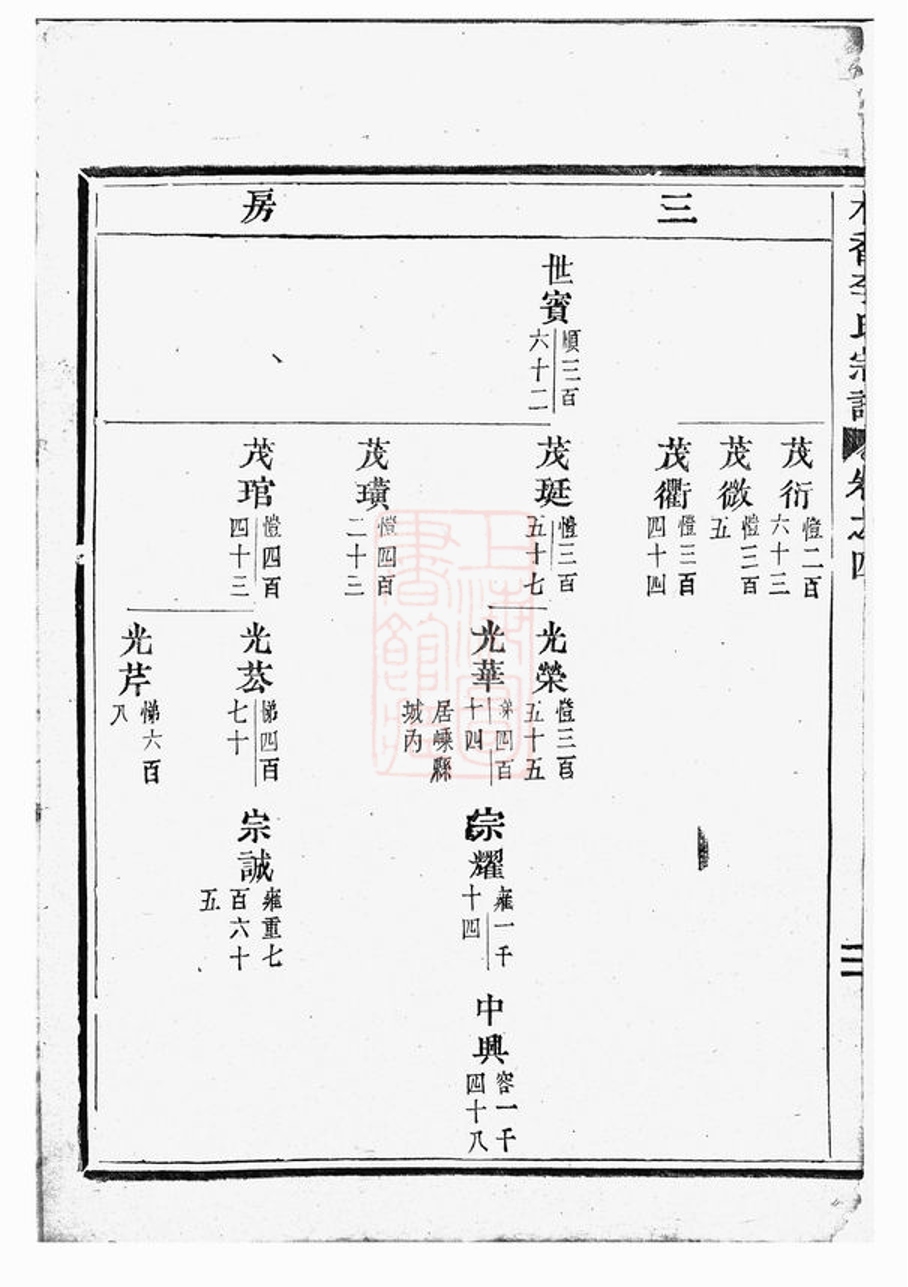 香李氏宗譜 卷之四
三房
世賓 順三百六十二
茂衍 愷二百六十三
茂微 愷三百五
茂衢 愷三百四十四
茂珽 愷三百五十七
茂璜 愷四百二十三
茂琯 愷四百四十三
光榮 愷三百五十五
光華 悌四百十四
居嵊縣城內
光荔 悌四百七十
光芹 悌六百八
宗耀 雍一千十四
宗誠 雍重七百六十五
中興 容一千四十八
二
上海圖書館藏